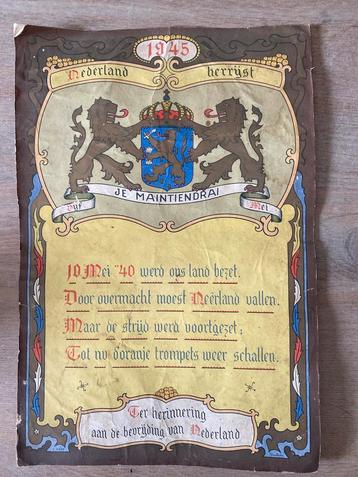 1945
Nederland herrijst
JE MAINTIENDRAI
Vijf Mei
10 Mei "40 werd ons land bezet.
Door overmacht moest Neêrland vallen.
Maar de strijd werd voortgezet;
Tot nu d'oranje trompets weer schallen.
Ter herinnering
aan de bevrijding van Nederland